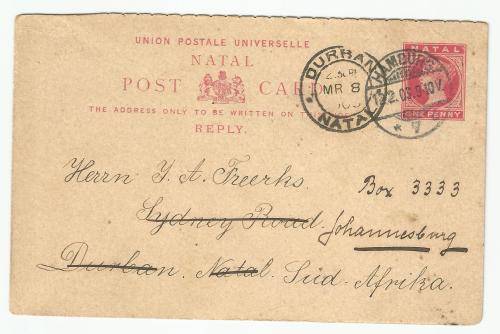 UNION POSTALE UNIVERSELLE
NATAL
POST CARD
THE ADDRESS ONLY TO BE WRITTEN ON
REPLY.
NATAL
ONE PENNY
DURBAN
MR 8
NATAL
HAMBURG
Herrn Y. A. Freerks
Box 3333
Sydney Road
Johannesburg
Durban. Natal. Süd-Afrika.